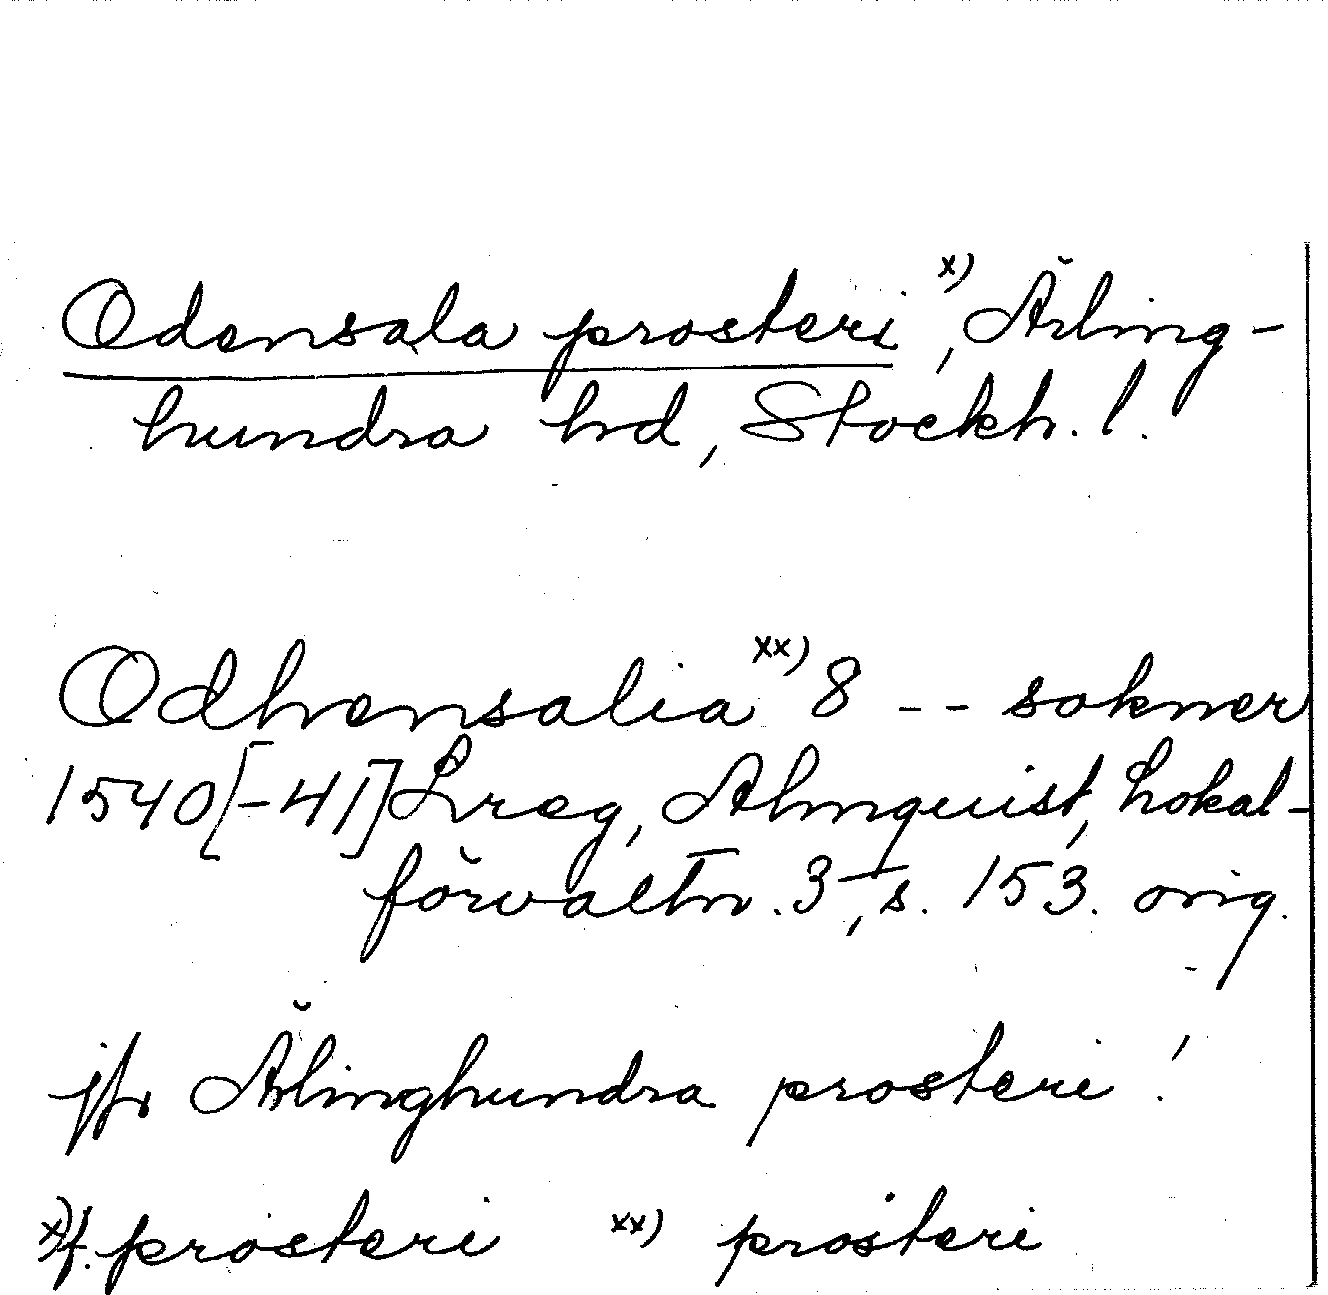 Odensala prosteri x), Ärling-
hundra hd, Stockh. l.
Odhensalia xx) 8 -- sokner
1540[-41] Lreg, Almquist, Lokal-
förvaltn. 3, s. 153. orig.
jfr Ärlinghundra prosteri!
x) f. prosteri xx) prosteri